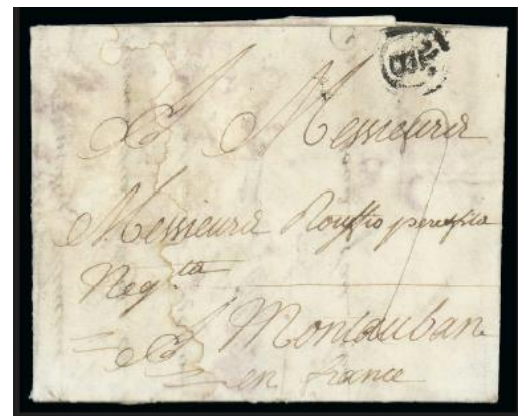 A Messieurs
Messieurs Rouffio pere & fils
Neg.ts
A Montauban
en france